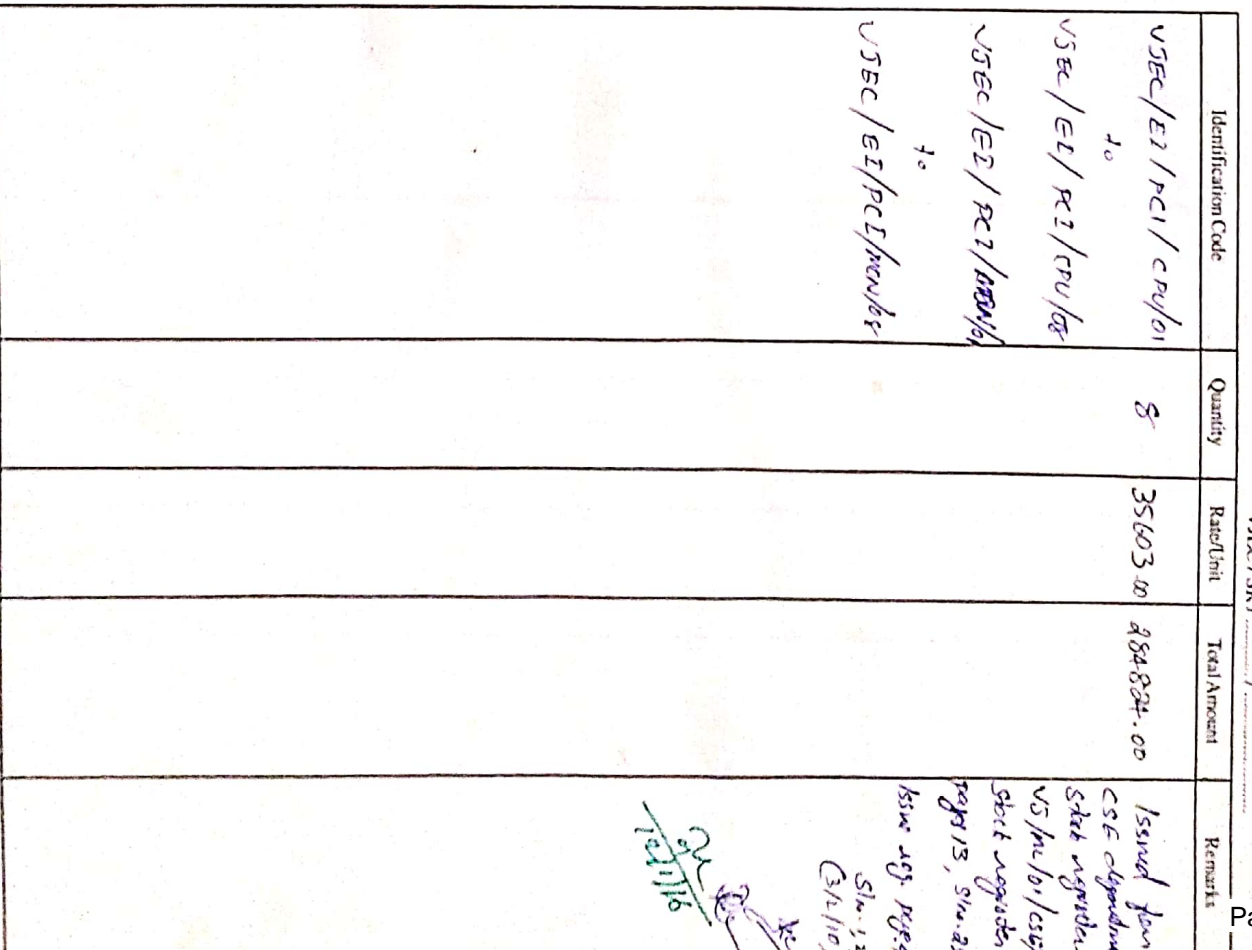 Identification Code
Quantity
Rate/Unit
Total Amount
Remarks
VJEC/EI/PCI/CPU/01
to
VJEC/EI/PCI/CPU/08
VJEC/EI/PCI/
to
VJEC/EI/PCI/MCN/08
8
35603.00
284824.00
Issued from
CSE departm
Stock register
VJ/
Stock register
page 13, Sl no. 2
Issue reg. page
Sl no - 1, 2
12/1/16
Pa